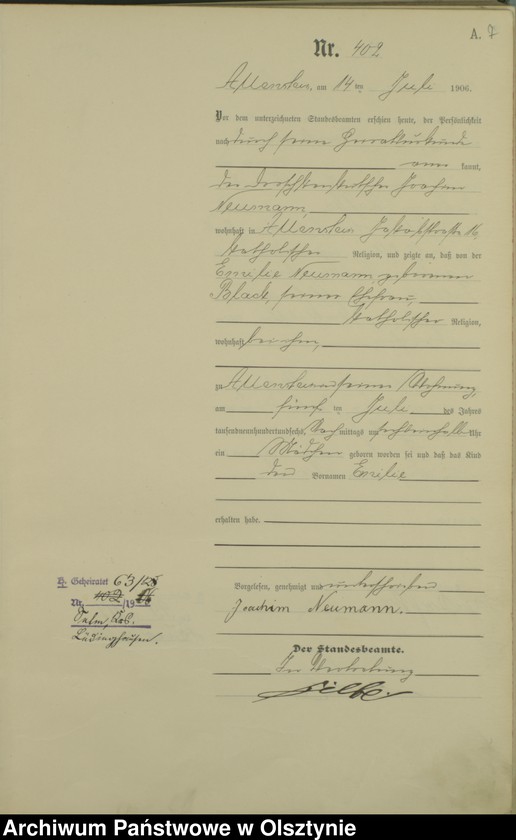 A. 7
Nr. 402
Allenstein, am 14 ten Juli 1906.
Vor dem unterzeichneten Standesbeamten erschien heute, der Persönlichkeit
nach durch seine Heiratsurkunde
aner kannt,
der Droschkenkutscher Joachim
Neumann
wohnhaft in Allenstein,
katholischer Religion, und zeigte an, daß von der
Emilie Neumann, geborenen
Black, seiner Ehefrau,
katholischer Religion,
wohnhaft bei ihm,
zu Allenstein in seiner Wohnung,
am fünf ten Juli des Jahres
tausendneunhundertundsechs, Nachmittags um Uhr
ein Mädchen geboren worden sei und daß das Kind
den Vornamen Emilie
erhalten habe.
Vorgelesen, genehmigt und unterschrieben
Joachim Neumann.
Der Standesbeamte.
In Vertretung
Geheiratet 63/
Nr. 402/19
Lüdinghausen.
Archiwum Państwowe w Olsztynie